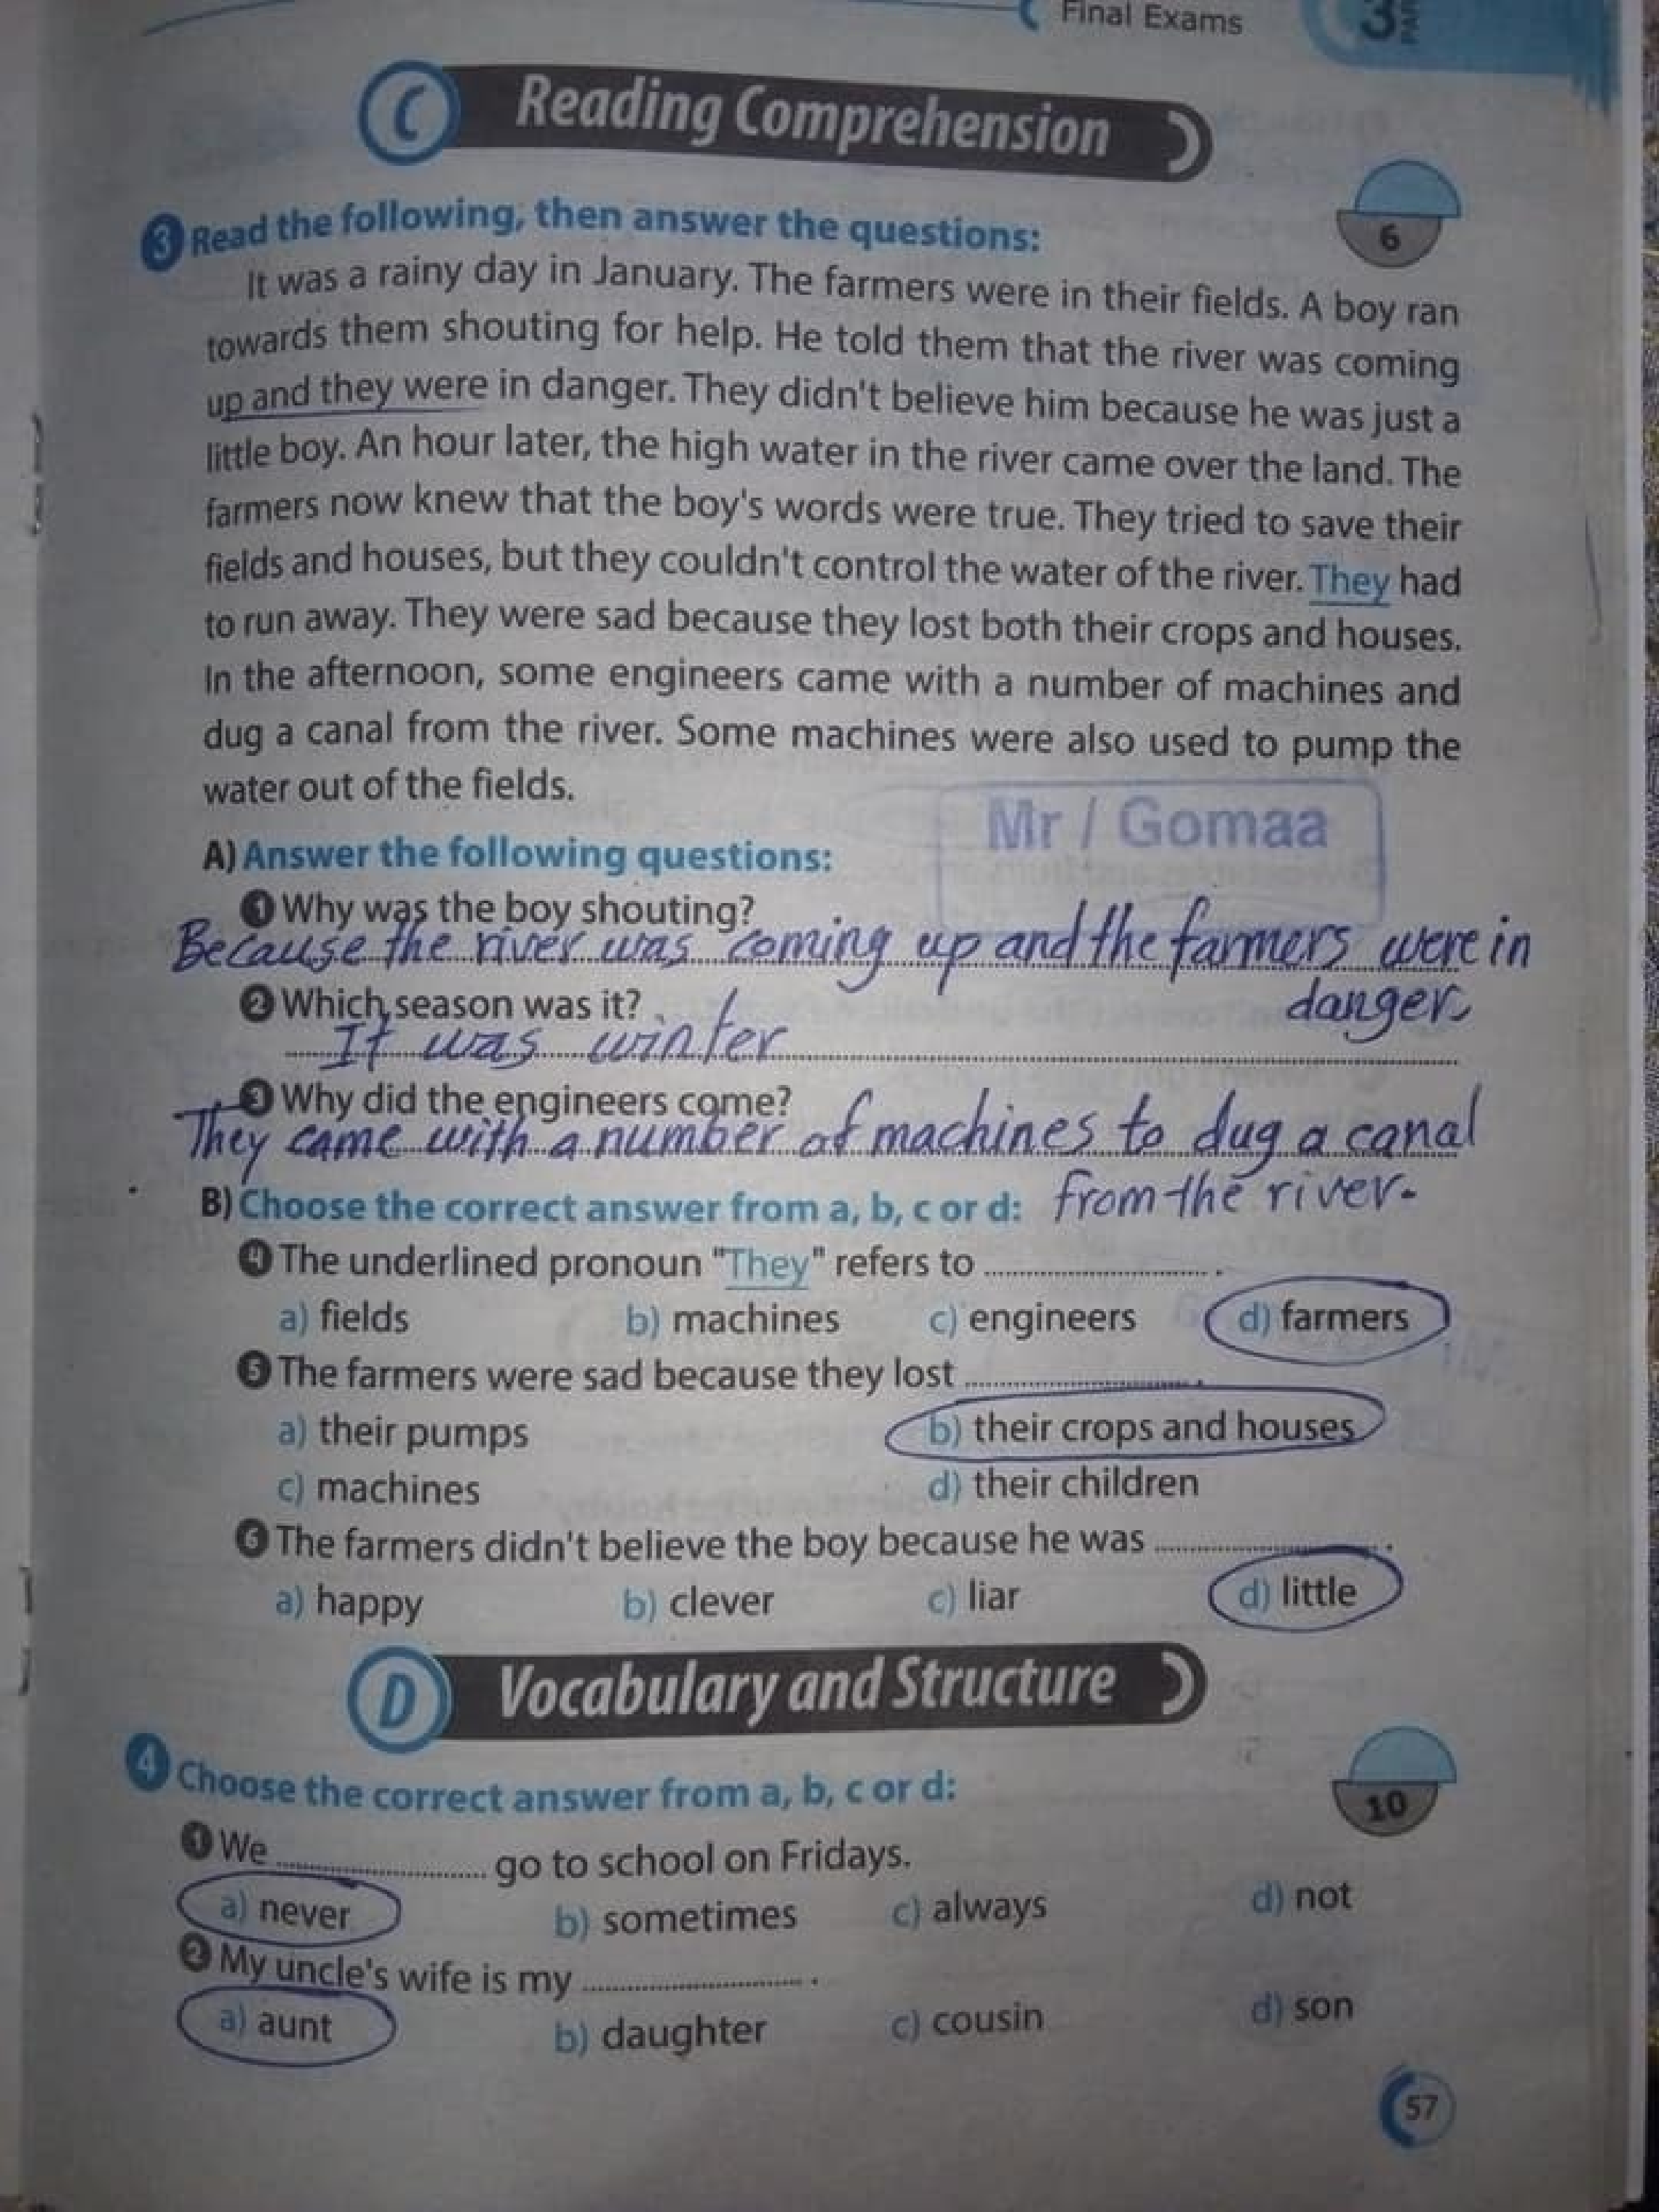 Final Exams
3
C Reading Comprehension
3 Read the following, then answer the questions:
6
It was a rainy day in January. The farmers were in their fields. A boy ran
towards them shouting for help. He told them that the river was coming
up and they were in danger. They didn't believe him because he was just a
little boy. An hour later, the high water in the river came over the land. The
farmers now knew that the boy's words were true. They tried to save their
fields and houses, but they couldn't control the water of the river. They had
to run away. They were sad because they lost both their crops and houses.
In the afternoon, some engineers came with a number of machines and
dug a canal from the river. Some machines were also used to pump the
water out of the fields.
Mr / Gomaa
A) Answer the following questions:
1 Why was the boy shouting?
Because the river was coming up and the farmers were in
danger.
2 Which season was it?
It was winter
3 Why did the engineers come?
They came with a number of machines to dug a canal
from the river.
B) Choose the correct answer from a, b, c or d:
4 The underlined pronoun "They" refers to .................... .
a) fields b) machines c) engineers d) farmers
5 The farmers were sad because they lost .................... .
a) their pumps b) their crops and houses
c) machines d) their children
6 The farmers didn't believe the boy because he was .................... .
a) happy b) clever c) liar d) little
D Vocabulary and Structure
4 Choose the correct answer from a, b, c or d:
10
1 We .................... go to school on Fridays.
a) never b) sometimes c) always d) not
2 My uncle's wife is my .................... .
a) aunt b) daughter c) cousin d) son
57